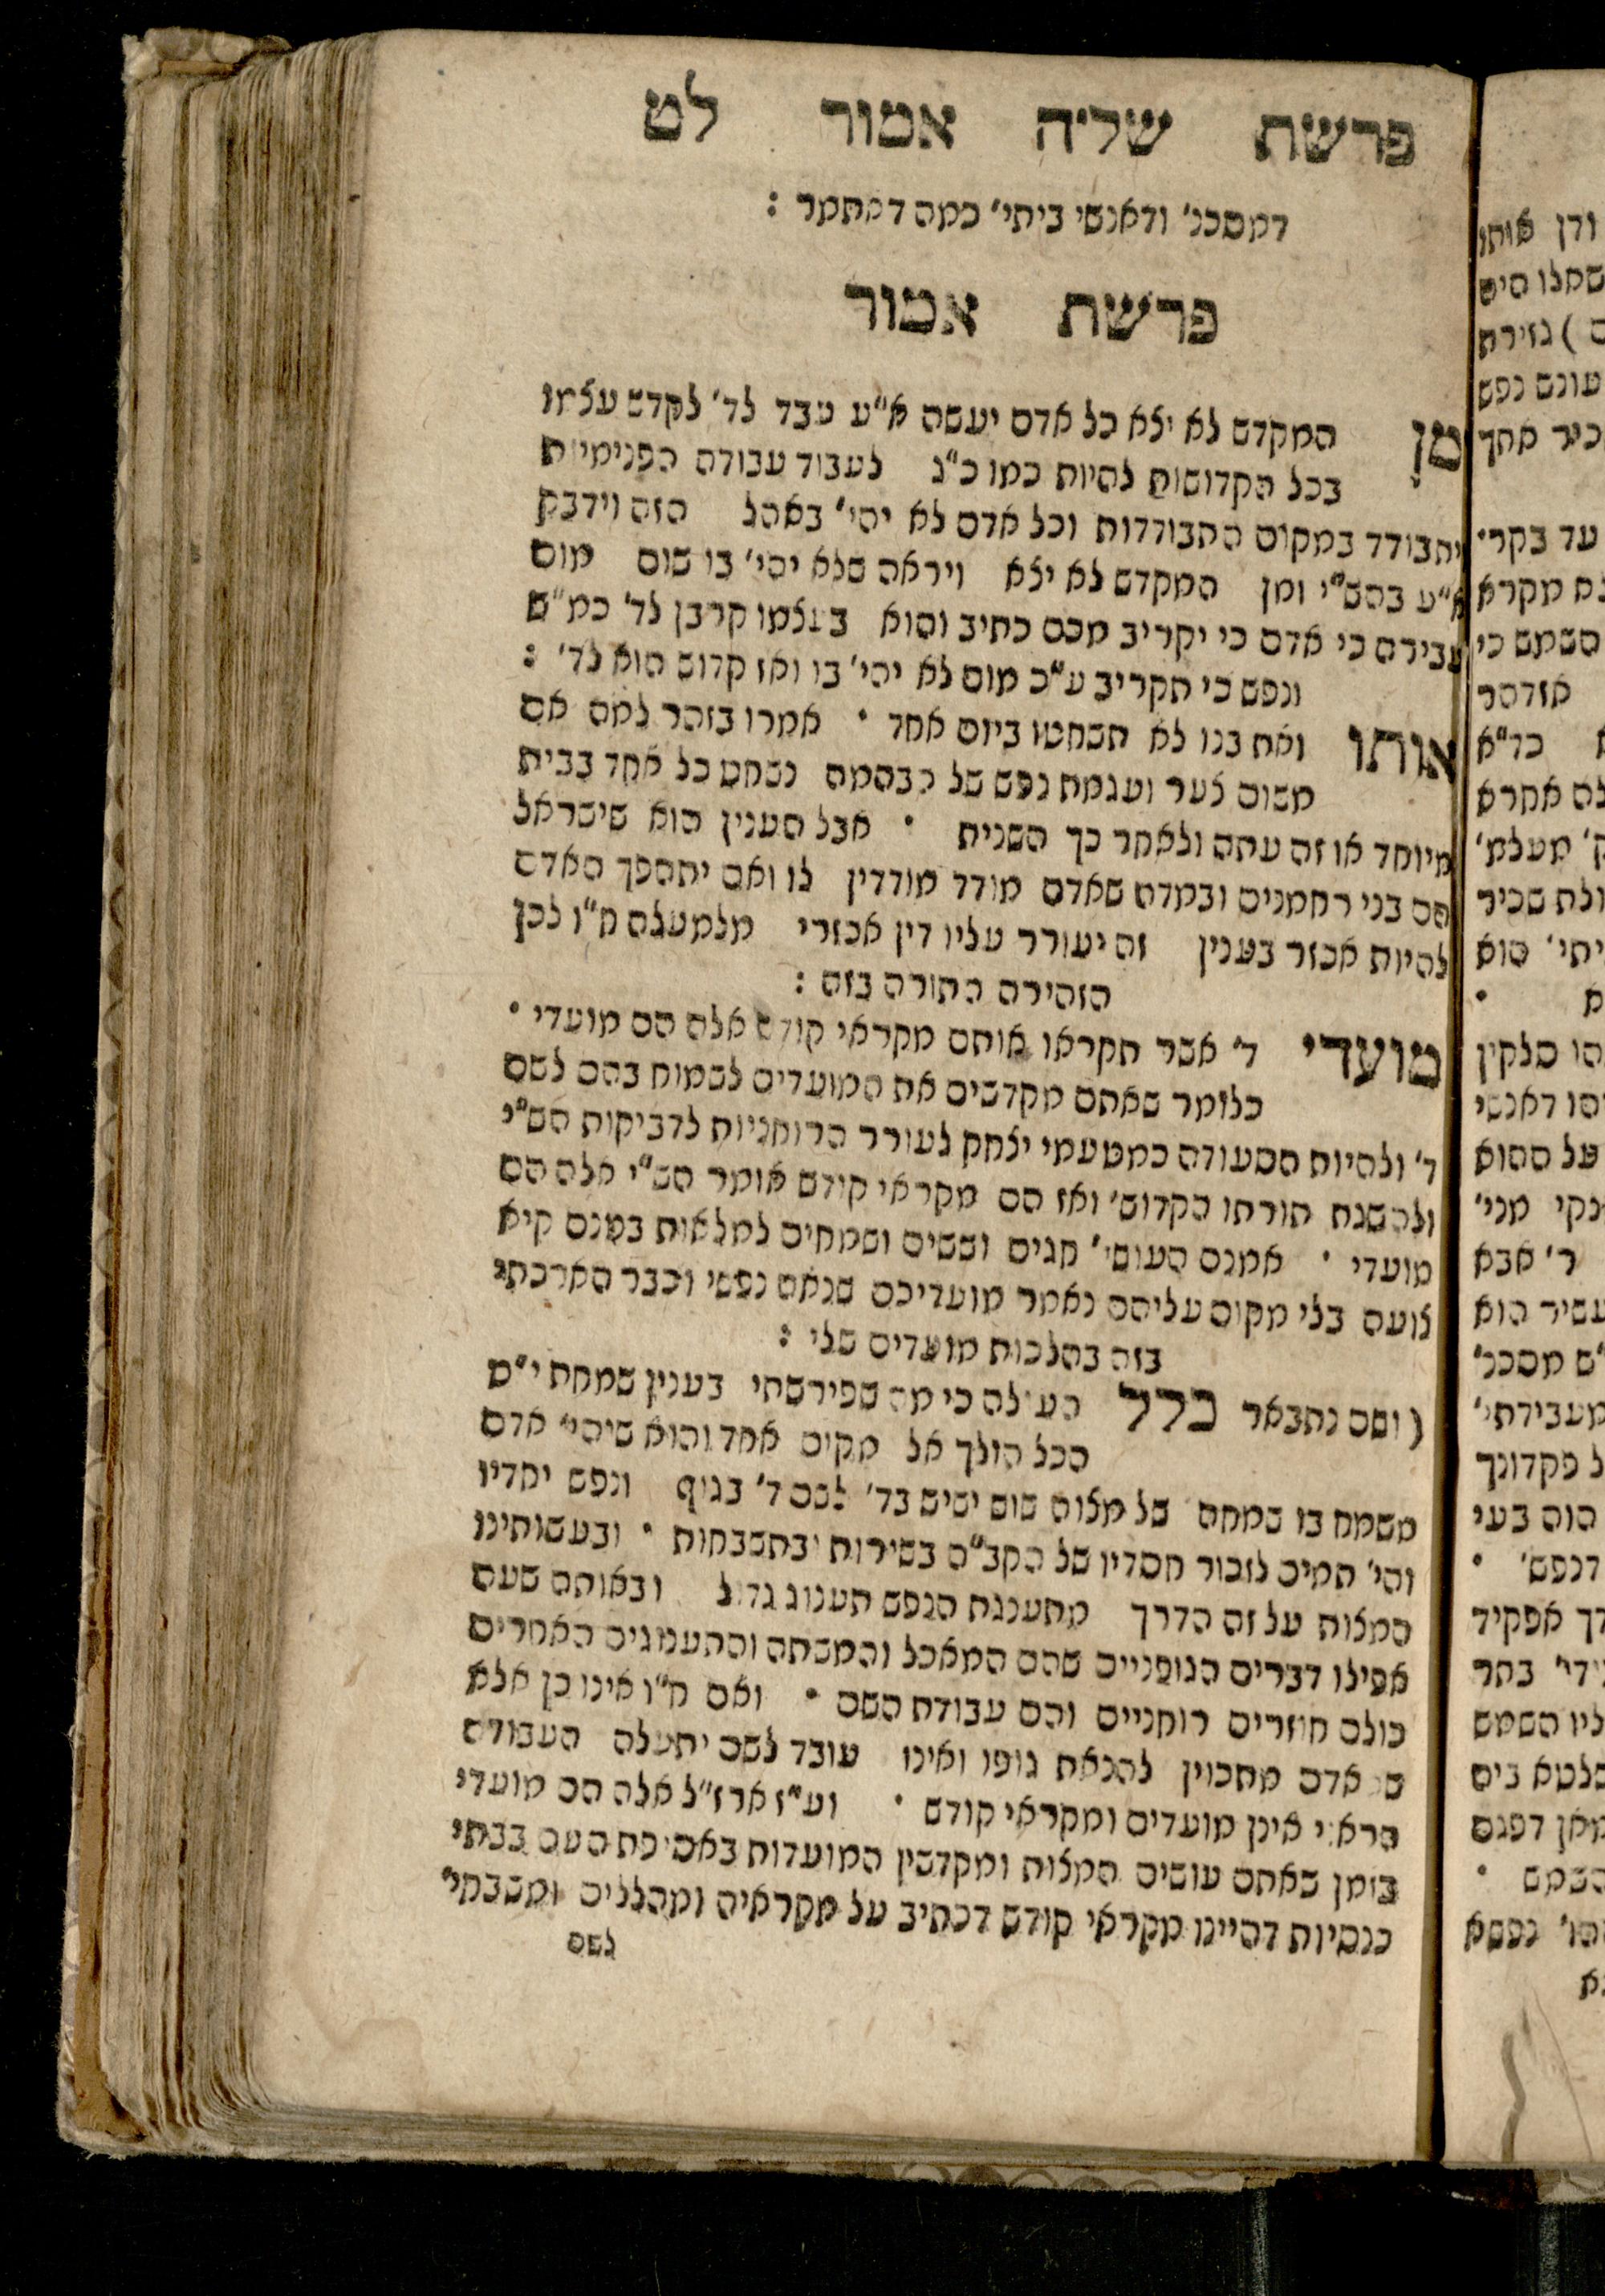 פרשת של״ה אמור לט
דמסכני ודאנשי ביתי׳ כמה דאתמר :
פרשת אמור
מן המקדש לא יצא כל אדם יעשה א״ע עבד לד׳ לקדש עצמו
בכל הקדושות להיות כמו כ״ג לעבוד עבודה הפנימיות
יתבודד במקום התבודדות וכל אדם לא יהי׳ באהל הזה וידבק
א״ע בהש״י ומן המקדש לא יצא ויראה שלא יהי׳ בו שום מום
עבירה כי אדם כי יקריב מכם כתיב והוא בעצמו קרבן לד׳ כמ״ש
ונפש כי תקריב ע״כ מום לא יהי׳ בו ואז קדוש הוא לד׳ :
אותו ואת בנו לא תשחטו ביום אחד • אמרו בזהר למה אם
משום צער ועגמת נפש של הבהמה נשחט כל אחד בבית
מיוחד או זה עתה ולאחר כך השנית • אבל הענין הוא שישראל
הם בני רחמנים ובמדה שאדם מודד מודדין לו ואם יתהפך האדם
להיות אכזר בענין זה יעורר עליו דין אכזרי מלמעלה ח״ו לכן
הזהירה התורה בזה :
מועדי ד׳ אשר תקראו אותם מקראי קודש אלה הם מועדי •
כלומר שאתם מקדשים את המועדים לשמוח בהם לשם
ד׳ ולהיות הסעודה כמטעמי יצחק לעורר הרוחניות לדביקות הש״י
ולהשגת תורתו הקדוש׳ ואז הם מקראי קודש אומר הש״י אלה הם
מועדי • אמנם העושי׳ חגים וששים ושמחים למלאות בטנם קיא
צועה בלי מקום עליהם נאמר מועדיכם שנאה נפשי וכבר הארכתי
בזה בהלכות מועדים שלי :
(ושם נתבאר כלל העולה כי מה שפירשתי בענין שמחת י״ט
הכל הולך אל מקום אחד והוא שיהי׳ אדם
משמח בו שמחה של מצוה שוש ישיש בד׳ לשם ד׳ בגוף ונפש יחדיו
והי׳ תמיד לזכור חסדיו של הקב״ה בשירות ובתשבחות • ובעשותינו
המצוה על זה הדרך מתענגת הנפש תענוג גדול ובאותה שעה
אפילו דברים הגופניים שהם המאכל והמשתה והתענוגים האחרים
כולם חוזרים רוחניים והם עבודת השם • ואם ח״ו אינו כן אלא
אדם מתכוין להנאת גופו ואינו עובד לשם יתעלה העבודה
הראוי אינן מועדים ומקראי קודש • וע״ז ארז״ל אלה הם מועדי
בזמן שאתם עושים המצות ומקדשין המועדות באסיפת העם בבתי
כנסיות דהיינו מקראי קודש דכתיב על מקראיה ומהללים ומשבחי׳
לשם
ודן אותו
גזירת
עונש נפש
אחד
עד בקר
מקרא
השמש כי
אזדהר
כד״א
אחרא
שכיר
הוא
סלקין
דאנשי
על ההוא
מני׳
ר׳ אבא
הוא
פקדונך
הוה בעי
דנפש׳ •
אפקיד
בתר
השמש
דפגם
נפשא